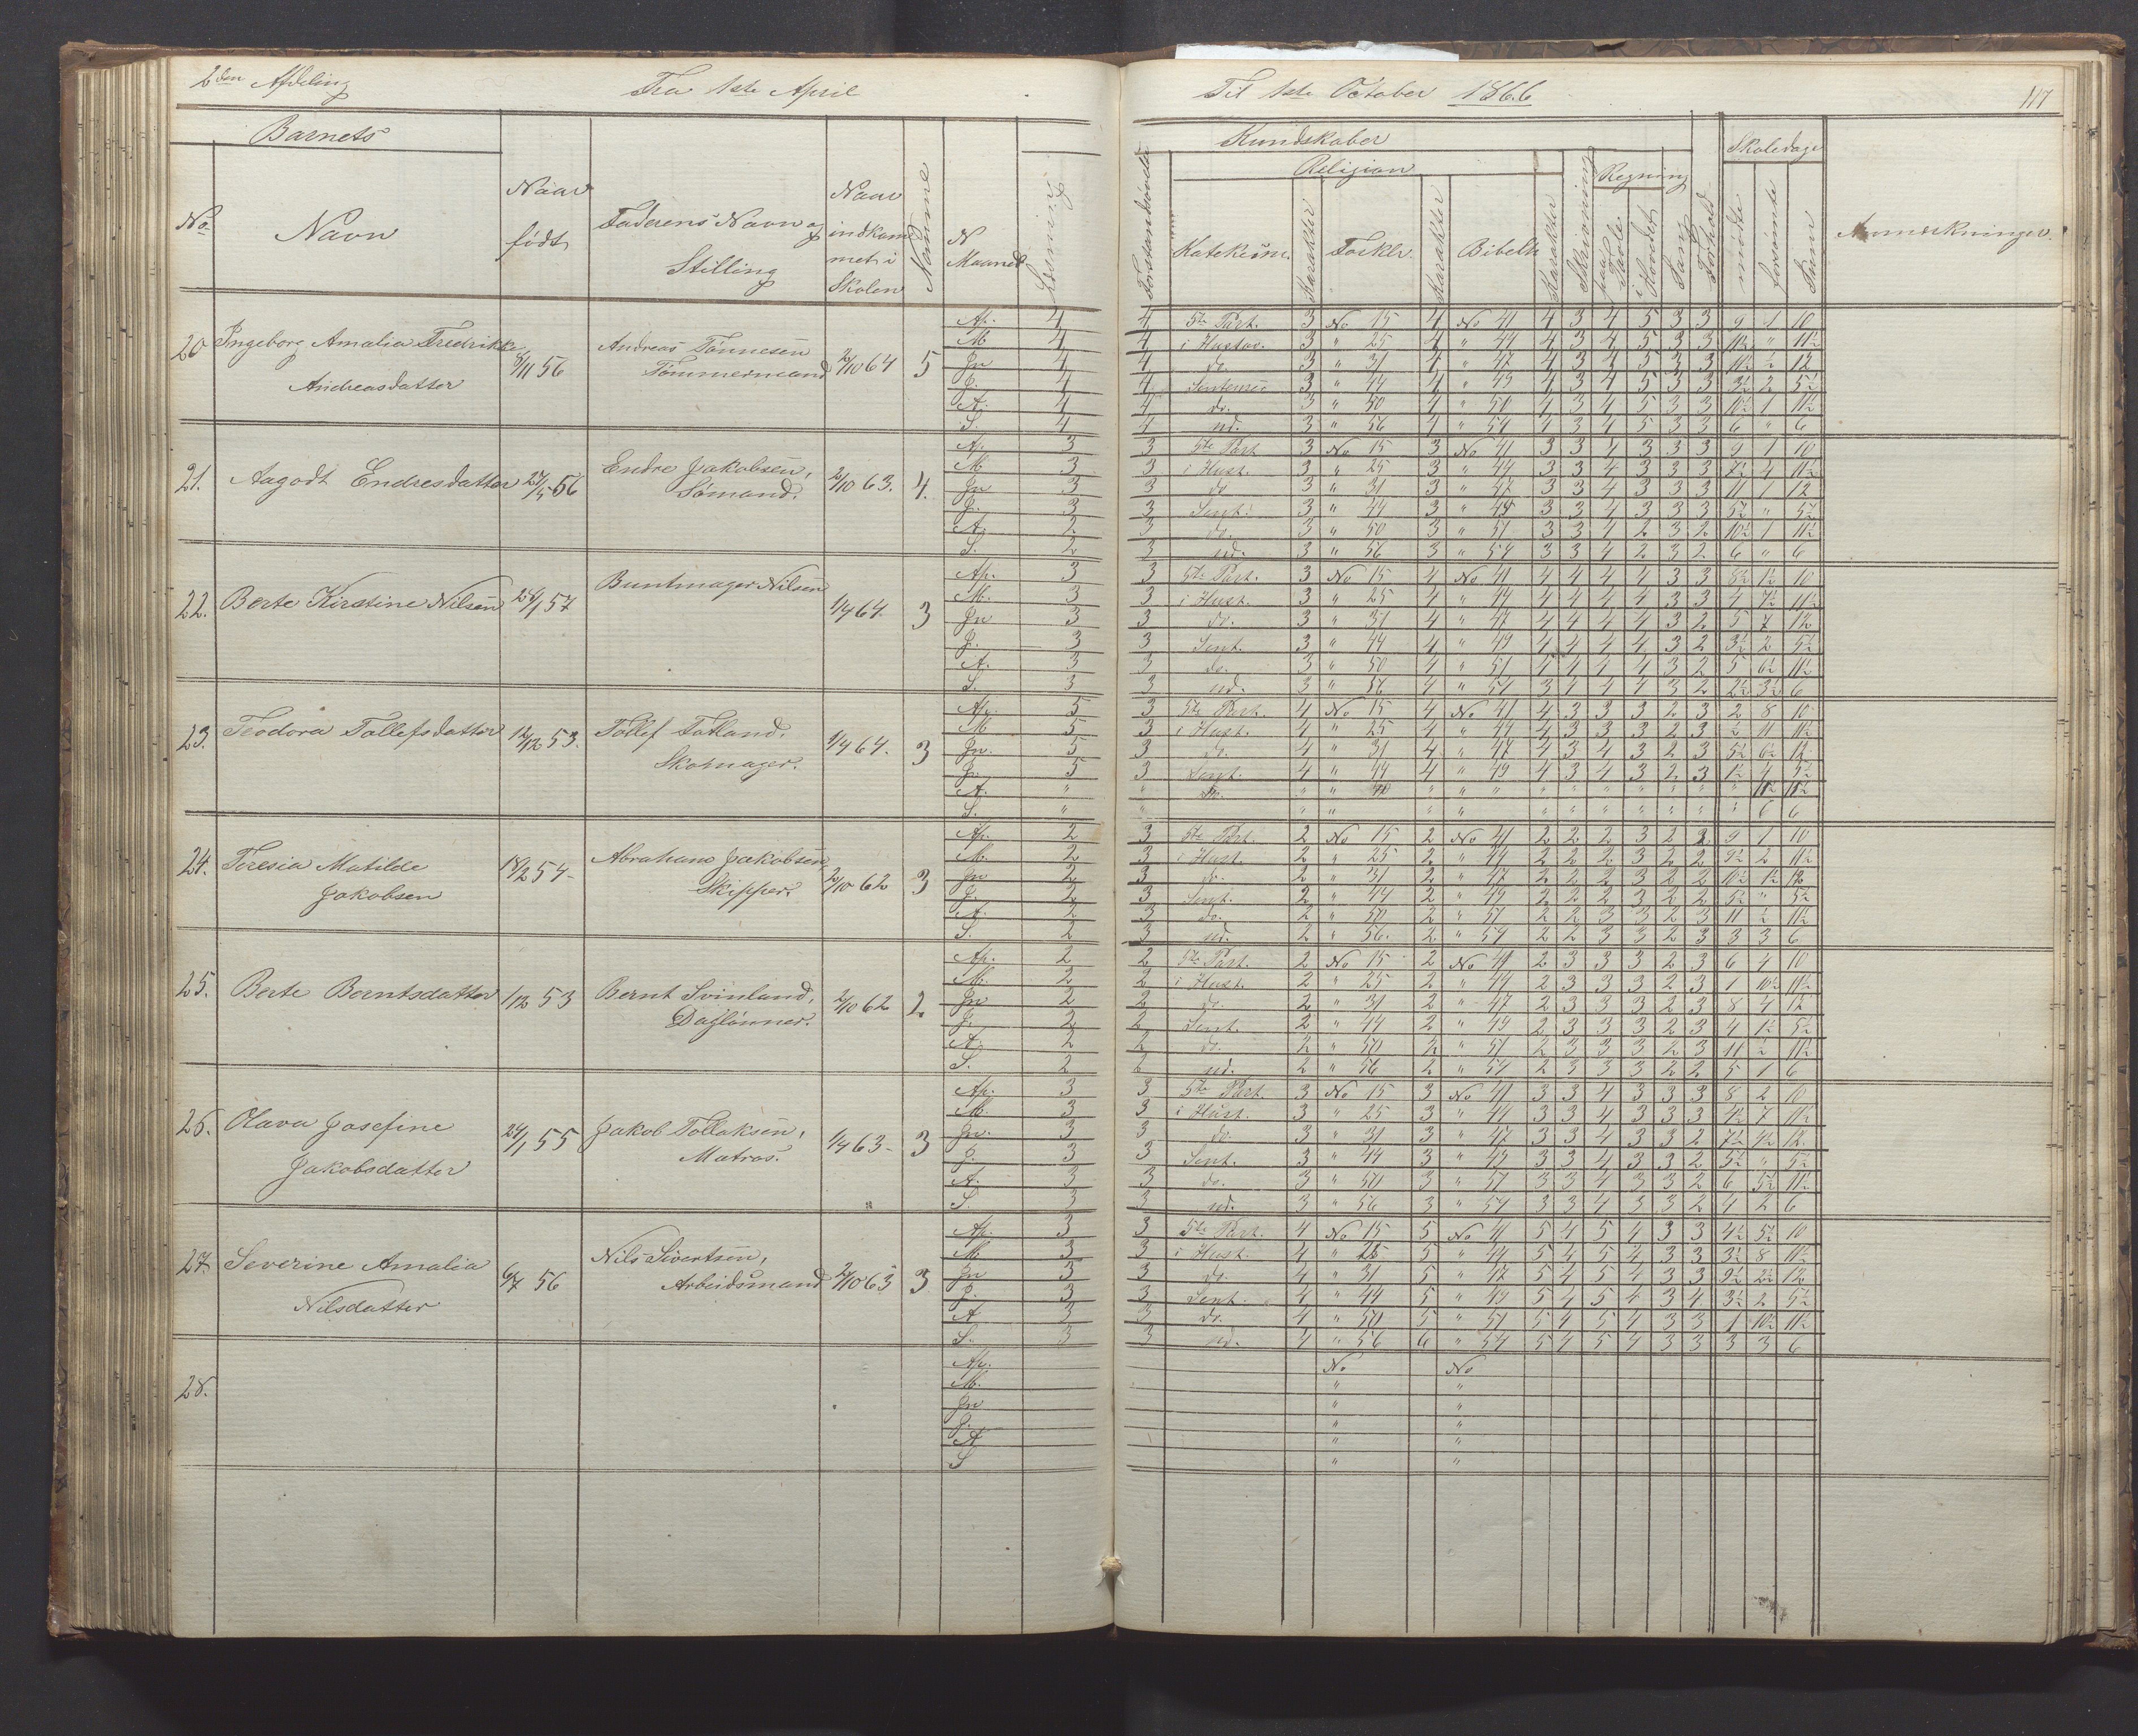 2den Afdeling Fra 1ste April Til 1ste October 1866 117
Barnets Kundskaber Skoledage
Religion Regning
No. Navn Naar født Faderens Navn og Stilling Naar indkommet i Skolen Nomme N Maaned Læsning Forstandsøvelse Katekism. Karakter Forklr. Karakter Bibelh. Karakter Skrivning paa Tavle i Hovdet Sang Forhold mødte forsømte Sum Anmerkninger.
20 Ingeborg Amalia Fredrikke 5/11 56 Andreas Tønnesen 2/10 64 5
Andreasdatter Tømmermand
Ap. 4 4 5te Part. 3 No 15 4 No 41 4 3 4 5 3 3 9 1 10
M 4 4 i Hustav. 3 " 25 4 " 44 4 3 4 5 3 3 11½ " 11½
Jn 4 4 do. 3 " 31 4 " 47 4 3 4 5 3 3 11½ ½ 12
J. 4 4 3 " 44 4 " 49 4 3 4 5 3 3 3½ 2 5½
A. 4 4 do. 3 " 50 4 " 51 4 3 4 5 3 3 10½ 1 11½
S. 4 4 ud. 3 " 56 4 " 54 4 3 4 5 3 3 6 " 6
21. Aagodt Endresdatter 27/5 56 Endre Jakobsen, 2/10 63. 4.
Sømand.
Ap. 3 3 5te Part 3 No 15 3 No 41 3 3 4 3 3 3 9 1 10
M 3 3 i Hust. 3 " 25 3 " 44 3 3 4 3 3 3 7½ 4 11½
Jn 3 3 do 3 " 31 3 " 47 3 3 4 3 3 3 11 1 12
J. 3 3 Sent. 3 " 44 3 " 49 3 3 4 3 3 3 5½ " 5½
A. 2 3 do. 3 " 50 3 " 51 3 3 4 2 3 2 10½ 1 11½
S. 2 3 ud. 3 " 56 3 " 54 3 3 4 2 3 2 6 " 6
22. Berte Kirstine Nilsen 24/1 57 Buntmager Nilsen 1/4 64. 3
Ap. 3 3 5te Part. 3 No 15 4 No 41 4 4 4 4 3 3 8½ 1½ 10
M. 3 3 i Hust. 3 " 25 4 " 44 4 4 4 4 3 3 4 7½ 11½
Jn 3 3 do. 3 " 31 4 " 47 4 4 4 4 3 2 5 7 12
J. 3 3 Sent. 3 " 44 4 " 49 4 4 4 4 3 2 3½ 2 5½
A. 3 3 do. 3 " 50 4 " 51 4 4 4 4 3 2 5 6½ 11½
S. 3 3 ud. 3 " 56 4 " 54 3 4 4 4 3 2 2½ 3½ 6
23. Teodora Tollefsdatter 12/12 53. Tollef Totland, 1/4 64. 3
Skomager.
Ap. 5 3 5te Part. 4 No 15 4 No 41 4 3 3 3 2 3 2 8 10
M 5 3 i Hust. 4 " 25 4 " 44 4 3 3 3 2 3 ½ 11 11½
Jn. 5 3 do. 4 " 31 4 " 47 4 3 4 3 2 3 5½ 6½ 12
J. 5 3 Sent. 4 " 44 4 " 49 4 3 4 3 2 3 1½ 4 5½
A. " " do. " " " " " " " " " " " " 11½ 11½
S. " " " " " " " " " " " " " 6 6
24. Teresia Matilde 18/2 54 - Abraham Jakobsen, 2/10 62 3
Jakobsen Skipper.
Ap. 2 3 5te Part. 2 No 15 2 No 41 2 2 2 3 2 2 9 1 10
M. 2 3 i Hust. 2 " 25 2 " 44 2 2 2 3 2 2 9½ 2 11½
Jn 2 3 do. 2 " 31 2 " 47 2 2 2 3 2 2 10½ 1½ 12
J. 2 3 Sent. 2 " 44 2 " 49 2 2 2 3 2 2 5½ " 5½
A. 2 3 do. 2 " 50 2 " 51 2 2 3 3 2 3 11 ½ 11½
S. 2 3 ud. 2 " 56. 2 " 54 2 2 3 3 2 3 3 3 6
25. Berte Berntsdatter 1/12 53 Bernt Svinland, 2/10 62 2.
Daglønner.
Ap. 2 2 5te Part. 2 No 15 2 No 41 2 3 3 3 2 3 6 4 10
M. 2 2 i Hust. 2 " 25 2 " 44 2 3 3 3 2 3 1 10½ 11½
Jn 2 2 do. 2 " 31 2 " 47 2 3 3 3 2 3 8 4 12
J. 2 2 Sent. 2 " 44 2 " 49 2 3 3 3 2 3 4 1½ 5½
A. 2 2 do. 2 " 50 2 " 51 2 3 3 3 2 3 11 ½ 11½
S. 2 2 ud. 2 " 56 2 " 54 2 3 3 3 2 2 5 1 6
26. Olava Josefine 24/1 55 Jakob Tollaksen, 1/4 63 - 3
Jakobsdatter Matros.
Ap. 3 3 5te Part. 3 No 15 3 No 41 3 3 4 3 3 3 8 2 10
M. 3 3 i Hust. 3 " 25 3 " 44 3 3 4 3 3 3 4½ 7 11½
Jn. 3 3 do. 3 " 31 3 " 47 3 3 4 3 3 2 7½ 4½ 12.
J. 3 3 Sent. 3 " 44 3 " 49 3 3 4 3 3 2 5½ " 5½
A. 3 3 do. 3 " 50 3 " 51 3 3 4 3 3 2 6 5½ 11½
S. 3 3 ud. 3 " 56 3 " 54 3 3 4 3 3 2 4 2 6
27. Severine Amalia 6/7 56 Nils Sivertsen, 2/10 63 3
Nilsdatter Arbeidsmand
Ap. 3 3 5te Part. 4 No 15 5 No 41 5 4 5 4 3 3 4½ 5½ 10
M 3 3 i Hust. 4 " 25 5 " 44 5 4 5 4 3 3 3½ 8 11½
Jn 3 3 do. 4 " 31 5 " 47 5 4 5 4 3 3 9½ 2½ 12
J. 3 3 Sent. 4 " 44 5 " 49 5 4 5 4 3 4 3½ 2 5½
A 3 3 do. 4 " 50 5 " 51 5 4 5 4 3 3 1 10½ 11½
S. 3 3 ud. 4 " 56 6 " 54 5 4 5 4 3 3 3 3 6
28.
Ap. No No
M. " "
Jn " "
J. " "
A " "
S " "